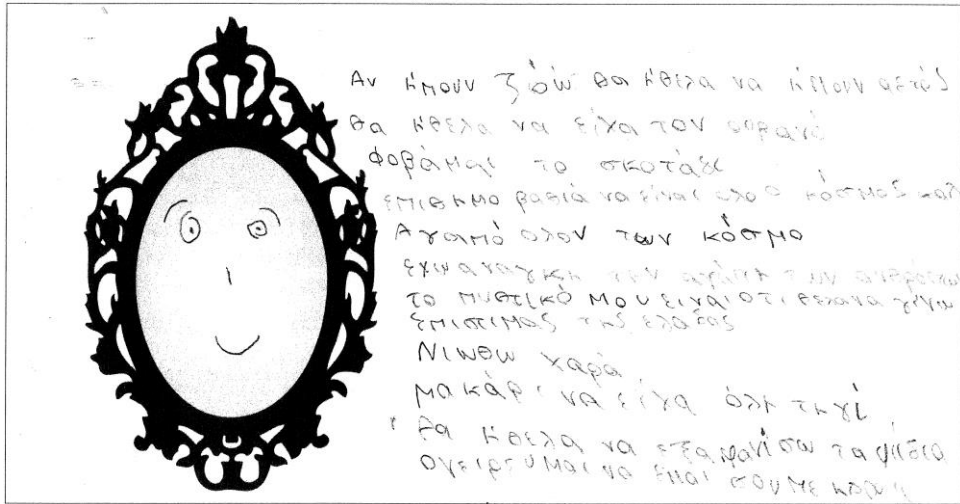 Αν ήμουν ζόω θα ήθελα να ήμουν αετός
θα ήθελα να είχα τον ουρανό
φοβάμαι το σκοτάδι
επιθημο βαθιά να είναι ολο ο κόσμος
Αγαπό ολον των κόσμο
εχω αναγκη την αγάπη των ανθρόπων
το μυστικό μου ειναι οτι θελω να γίνω
επιστιμας της ελαδας
Νιωθω χαρά
μακάρι να είχα όλη τη γί
θα ήθελα να εξαφανίσω τα φίδια
ονειρευμαι να ειμαι